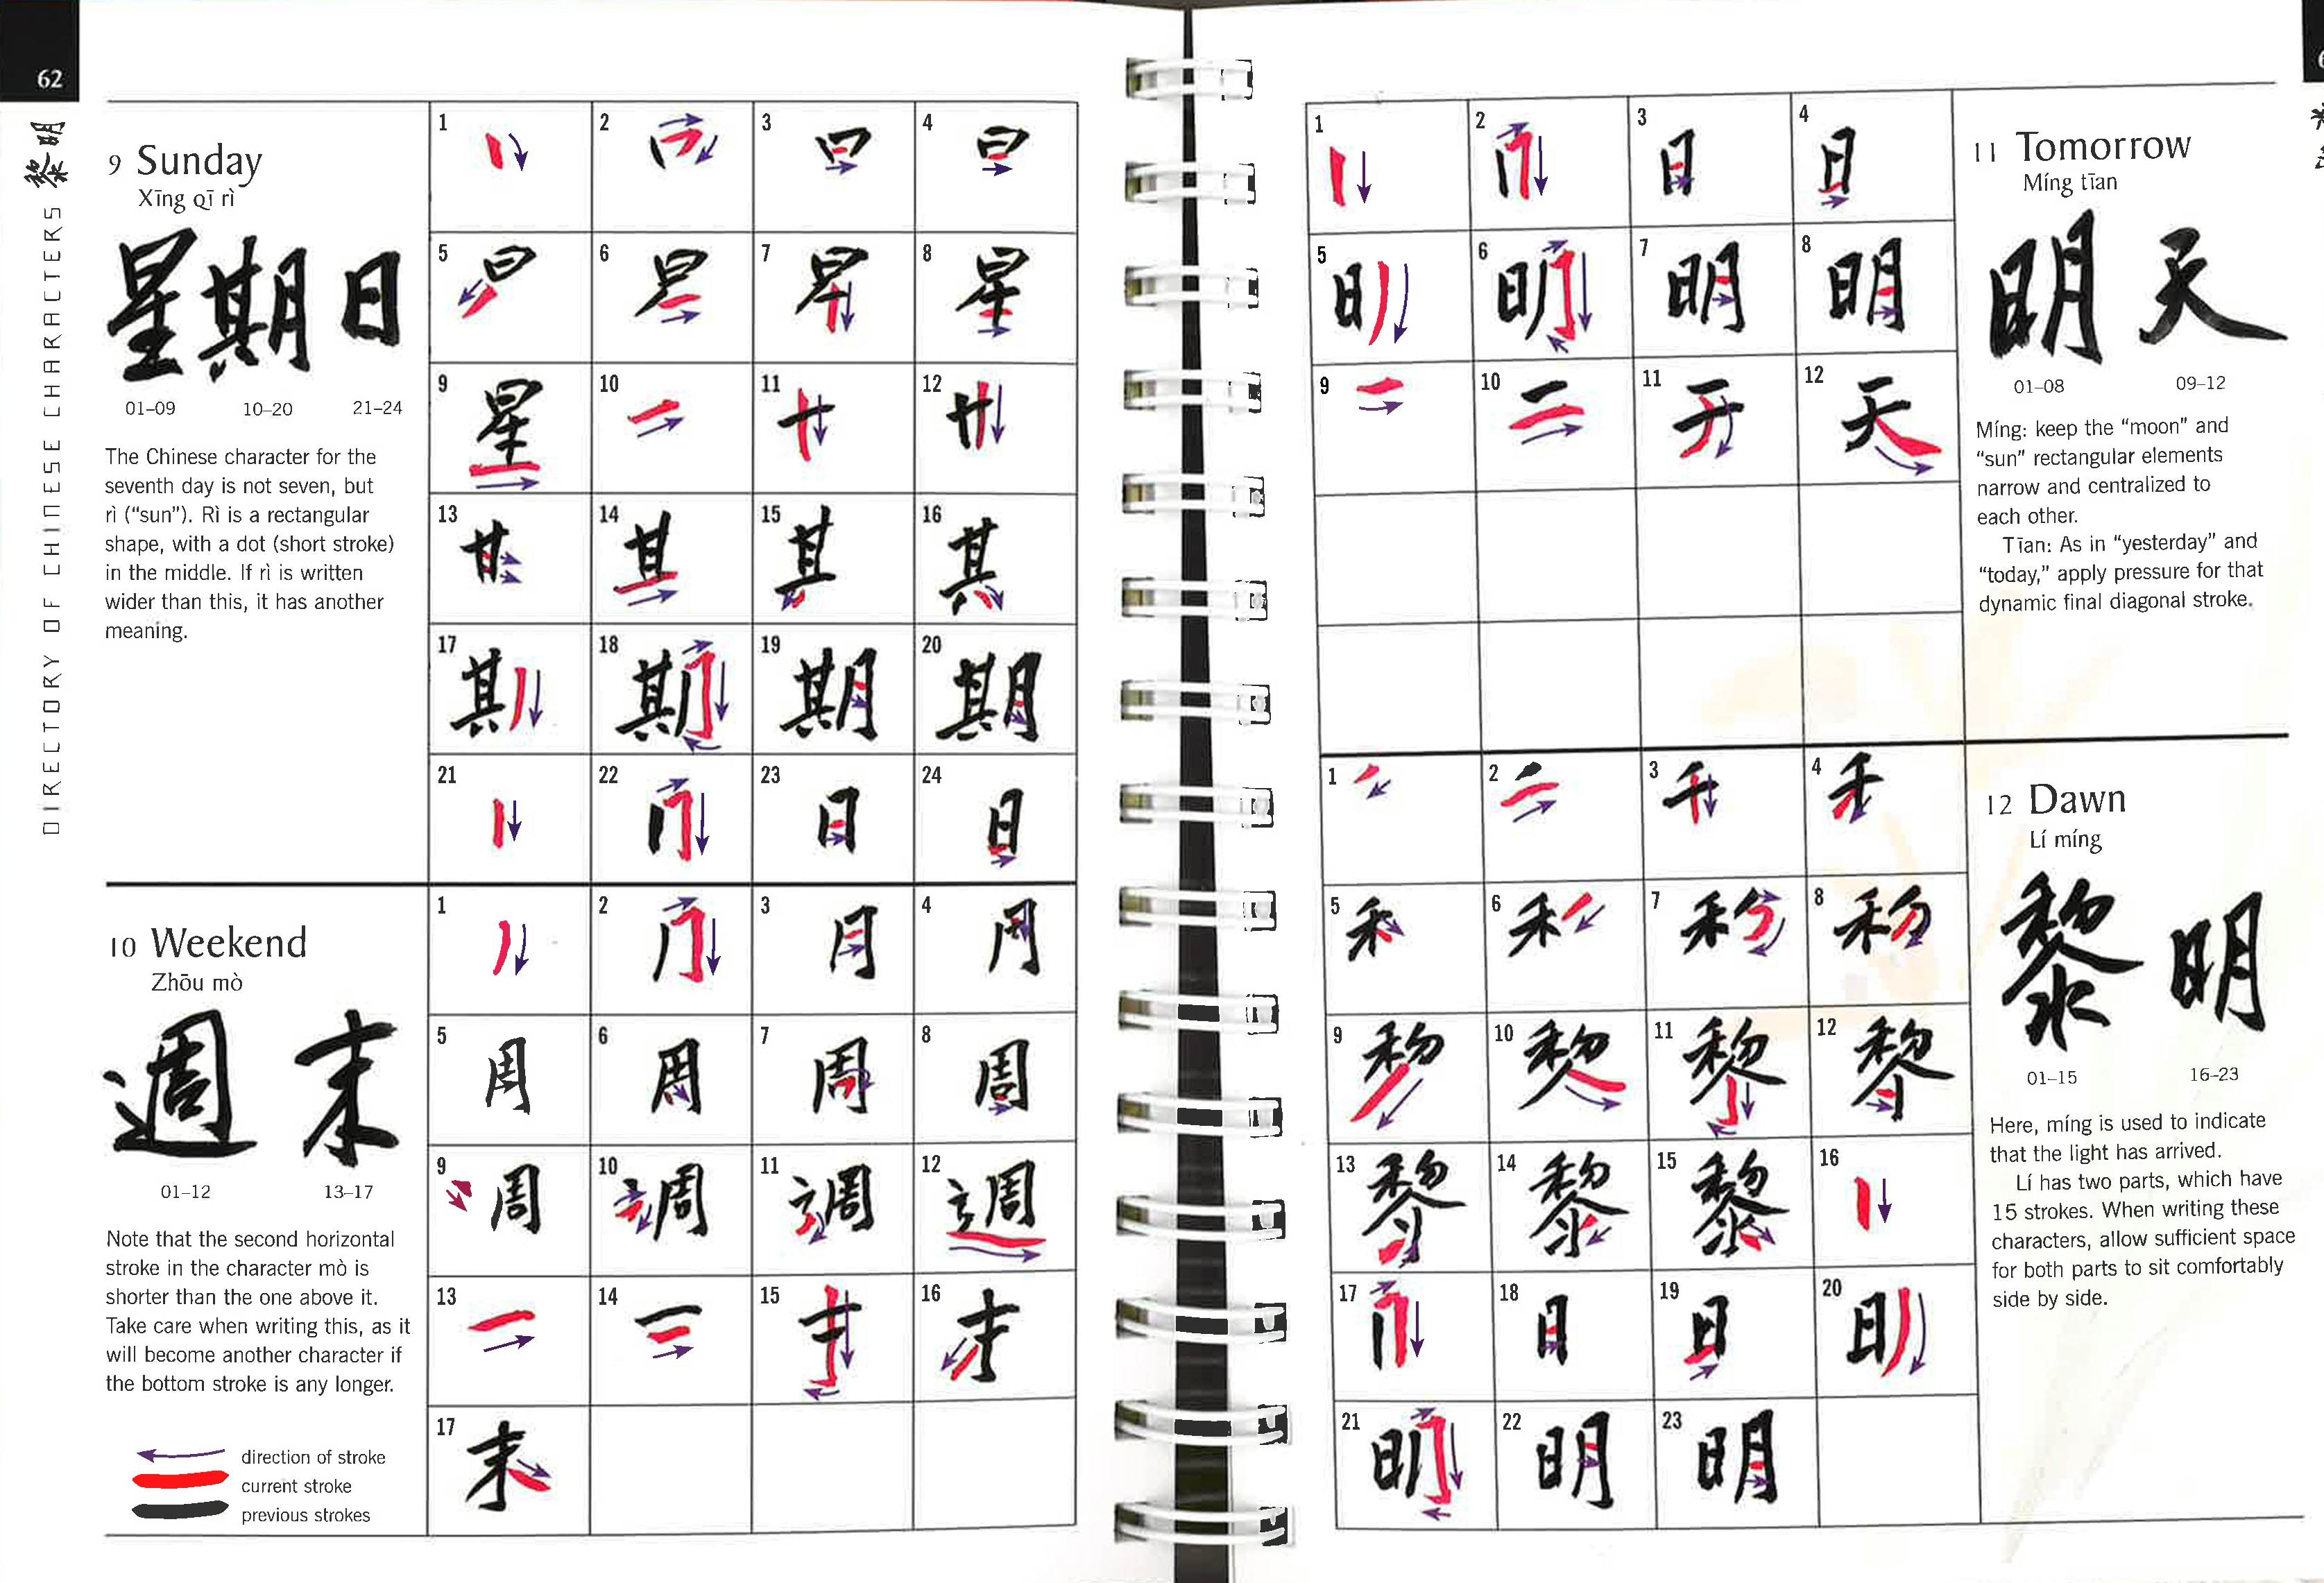 62
黎明
DIRECTORY OF CHINESE CHARACTERS
9 Sunday
Xīng qī rì
星期日
01–09 10–20 21–24
The Chinese character for the
seventh day is not seven, but
rì (“sun”). Rì is a rectangular
shape, with a dot (short stroke)
in the middle. If rì is written
wider than this, it has another
meaning.
1 2 3 4
5 6 7 8
9 10 11 12
13 14 15 16
17 18 19 20
21 22 23 24
10 Weekend
Zhōu mò
週末
01–12 13–17
Note that the second horizontal
stroke in the character mò is
shorter than the one above it.
Take care when writing this, as it
will become another character if
the bottom stroke is any longer.
direction of stroke
current stroke
previous strokes
1 2 3 4
5 6 7 8
9 10 11 12
13 14 15 16
17
1 2 3 4
5 6 7 8
9 10 11 12
11 Tomorrow
Míng tīan
明天
01–08 09–12
Míng: keep the “moon” and
“sun” rectangular elements
narrow and centralized to
each other.
Tīan: As in “yesterday” and
“today,” apply pressure for that
dynamic final diagonal stroke.
1 2 3 4
5 6 7 8
9 10 11 12
13 14 15 16
17 18 19 20
21 22 23
12 Dawn
Lí míng
黎明
01–15 16–23
Here, míng is used to indicate
that the light has arrived.
Lí has two parts, which have
15 strokes. When writing these
characters, allow sufficient space
for both parts to sit comfortably
side by side.